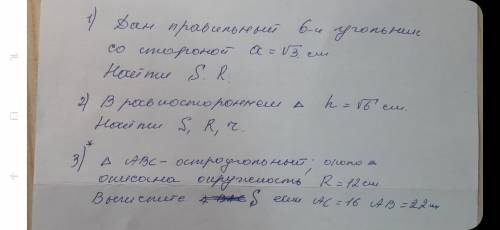 1) Дан правильный 6-и угольник
со стороной a = √3 см
Найти S. R.
2) В равностороннем △ h = √6 см.
Найти S, R, r.
3)* △ ABC - остроугольный; около △
описана окружность R = 12 см
Вычислите S если AC = 16 AB = 22 см